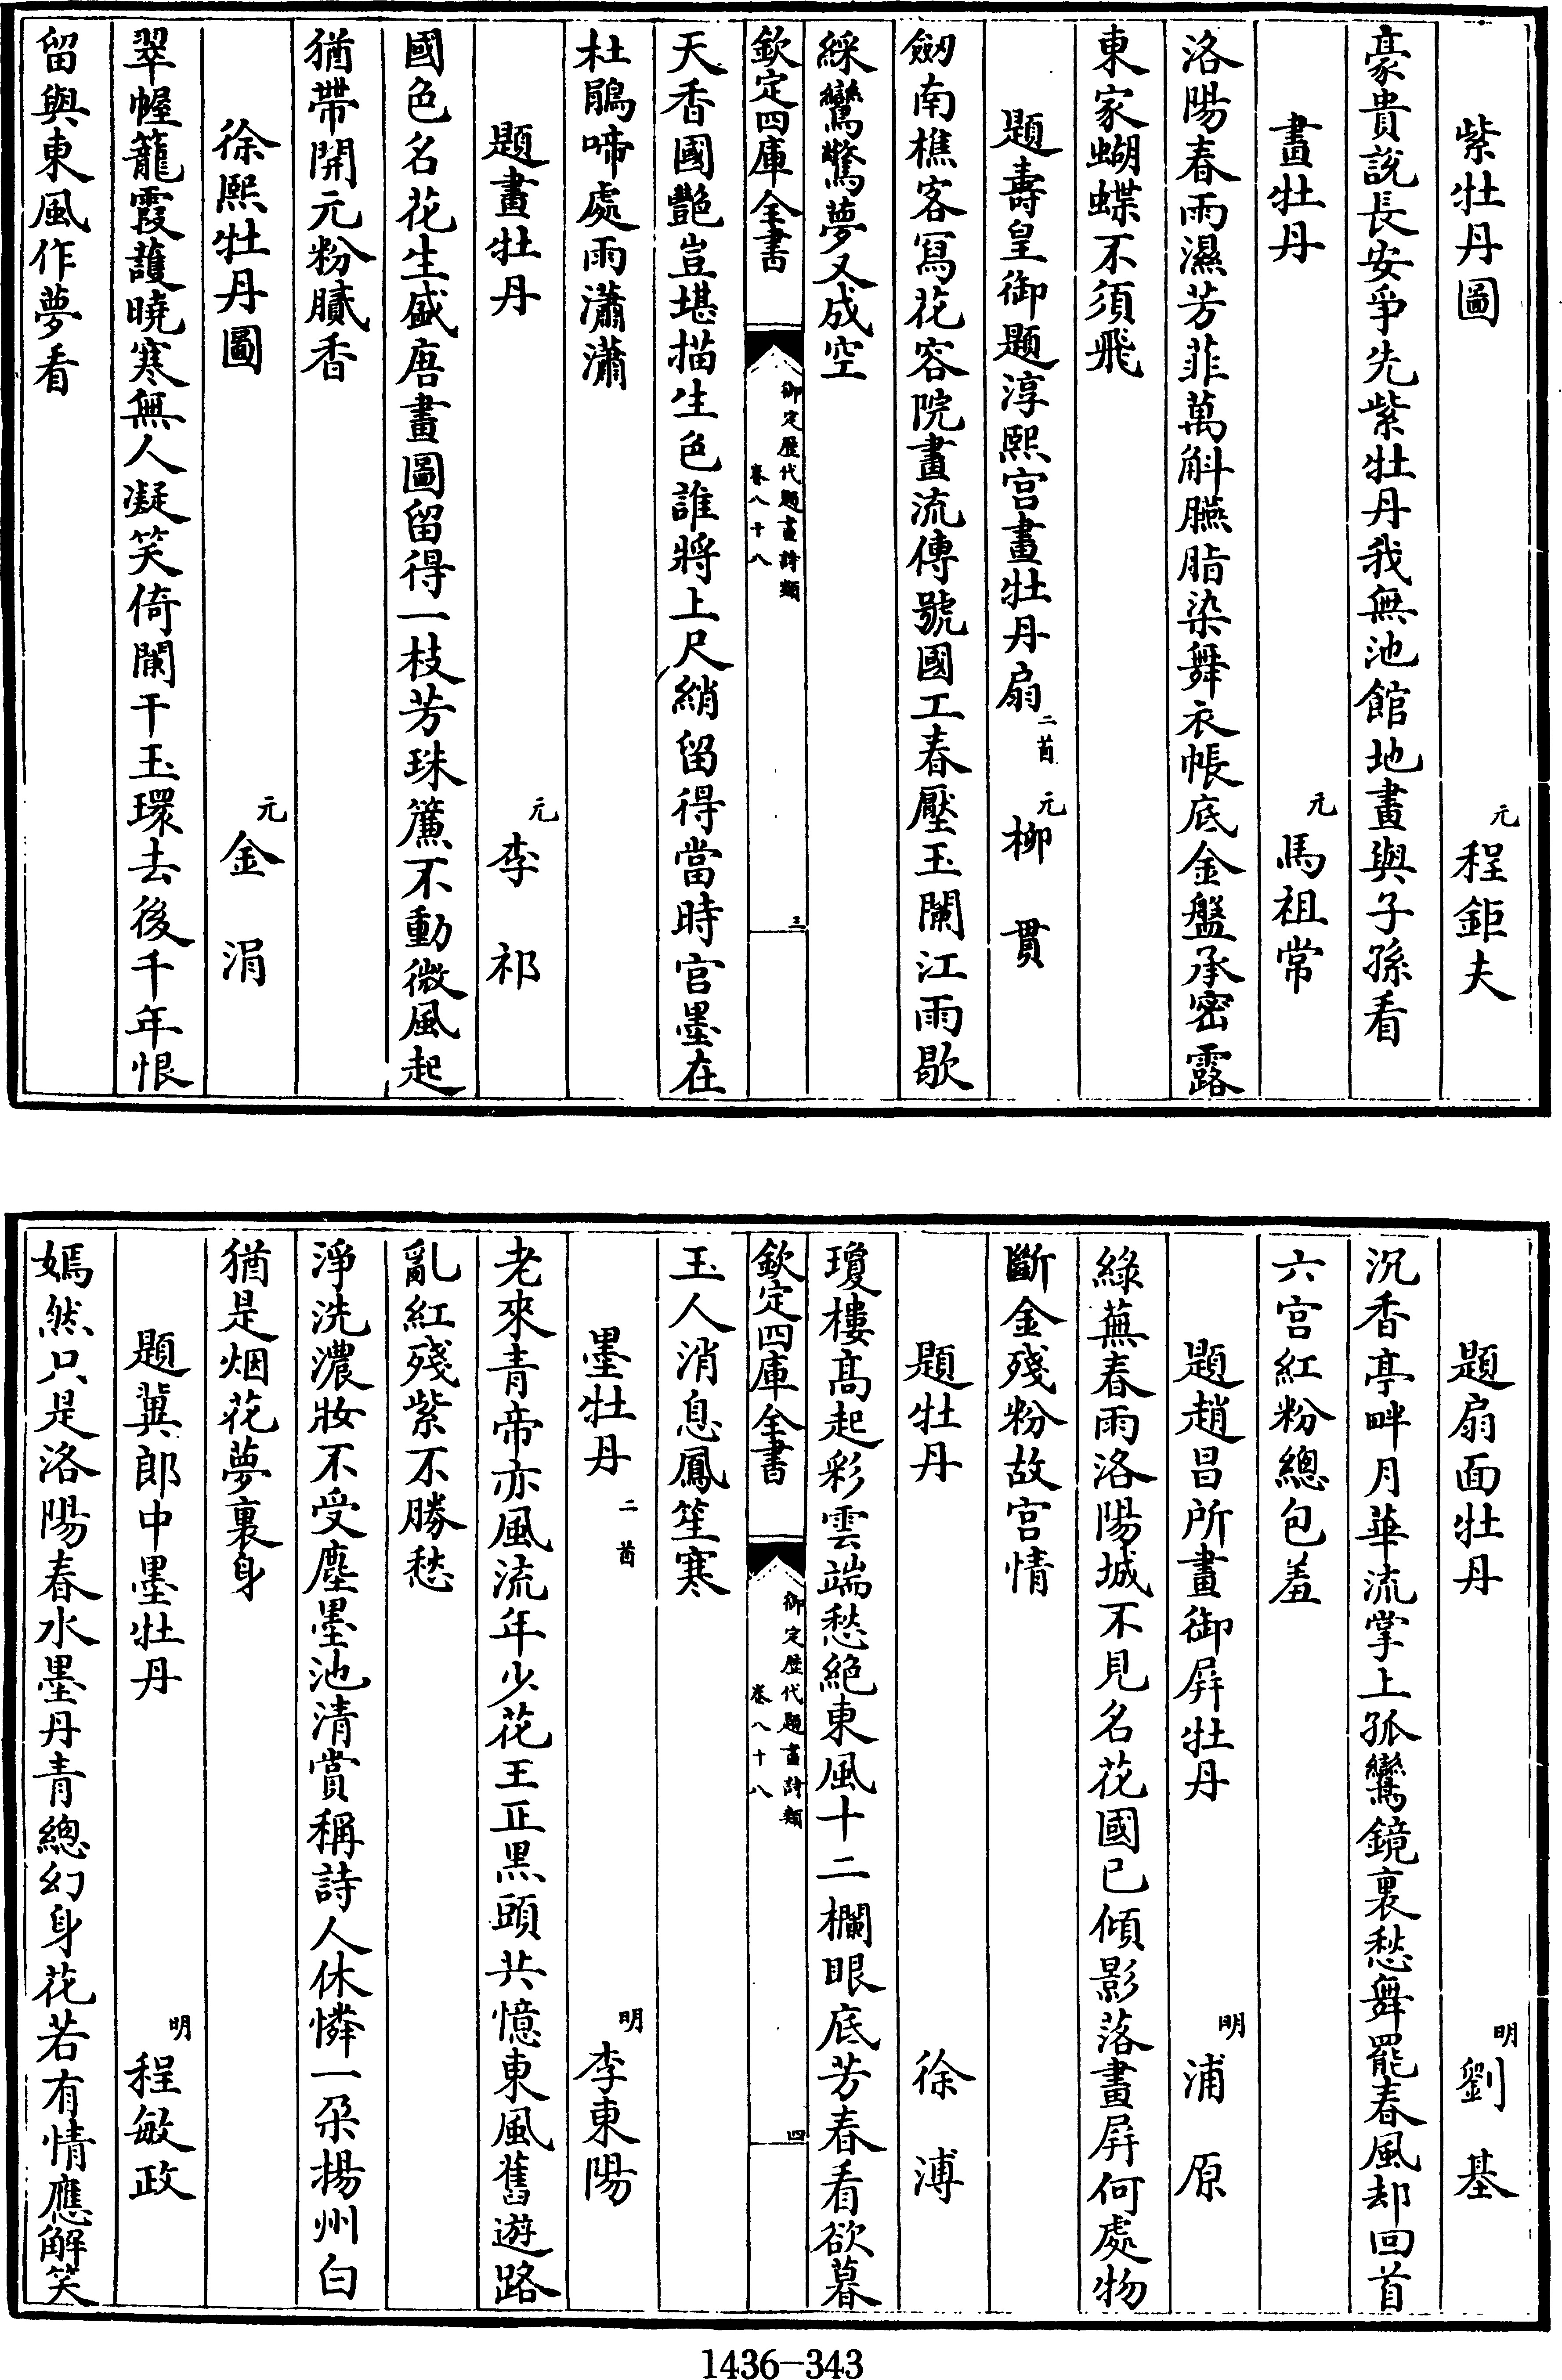 紫牡丹圖　元程鉅夫
豪貴說長安爭先紫牡丹我無池館地畫與子孫看
畫牡丹　元馬祖常
洛陽春雨濕芳菲萬斛臙脂染舞衣帳底金盤承密露
東家蝴蝶不須飛
題壽皇御題淳熙宫畫牡丹扇二首　元柳貫
劒南樵客冩花容院畫流傳號國工春壓玉闌江雨歇
綵鸞驚夢又成空
欽定四庫全書
御定歷代題畫詩類
卷八十八
三
天香國艷豈堪描生色誰將上尺綃留得當時宫墨在
杜鵑啼處雨瀟瀟
題畫牡丹　元李祁
國色名花生盛唐畫圖留得一枝芳珠簾不動微風起
猶帶開元粉膩香
徐熙牡丹圖　元金涓
翠幄籠霞護曉寒無人凝笑倚闌干玉環去後千年恨
留與東風作夢看
題扇面牡丹　明劉基
沉香亭畔月華流掌上孤鸞鏡裏愁舞罷春風却回首
六宫紅粉總包羞
題趙昌所畫御屏牡丹　明浦原
綠蕪春雨洛陽城不見名花國已傾影落畫屏何處物
斷金殘粉故宫情
題牡丹　徐溥
瓊樓髙起彩雲端愁絶東風十二欄眼底芳春看欲暮
欽定四庫全書
御定歷代題畫詩類
卷八十八
四
玉人消息鳳笙寒
墨牡丹二首　明李東陽
老來青帝亦風流年少花王正黑頭共憶東風舊遊路
亂紅殘紫不勝愁
淨洗濃妝不受塵墨池清賞稱詩人休憐一朶揚州白
猶是烟花夢裏身
題冀郎中墨牡丹　明程敏政
嫣然只是洛陽春水墨丹青總幻身花若有情應解笑
1436-343